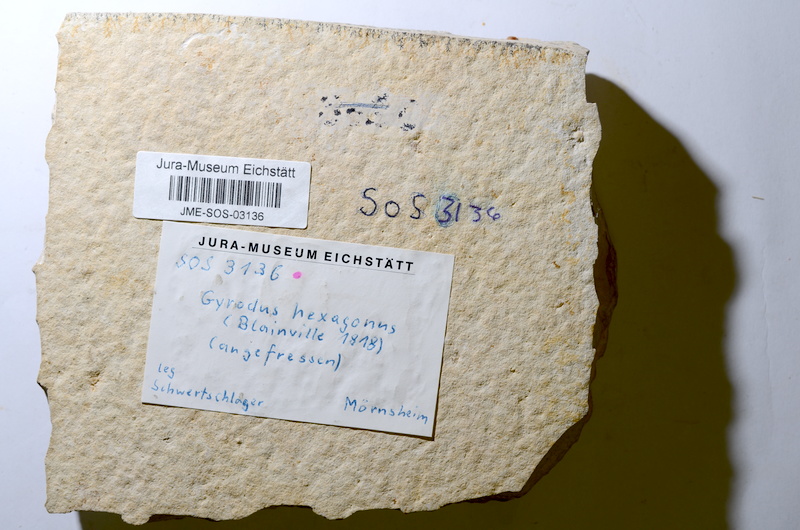 Jura-Museum Eichstätt
JME-SOS-03136
SOS 3136
JURA-MUSEUM EICHSTÄTT
SOS 3136
Gyrodus hexagonus
(Blainville 1818)
(angefressen)
leg
Schwertschlager
Mörnsheim